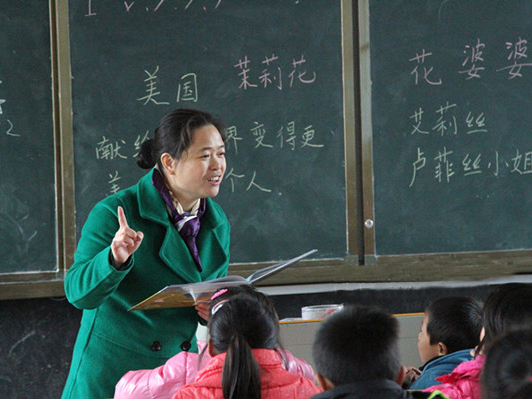 美国 茉莉花
献给 界变得更
美 个人.
花婆婆
艾莉丝
卢菲丝小姐